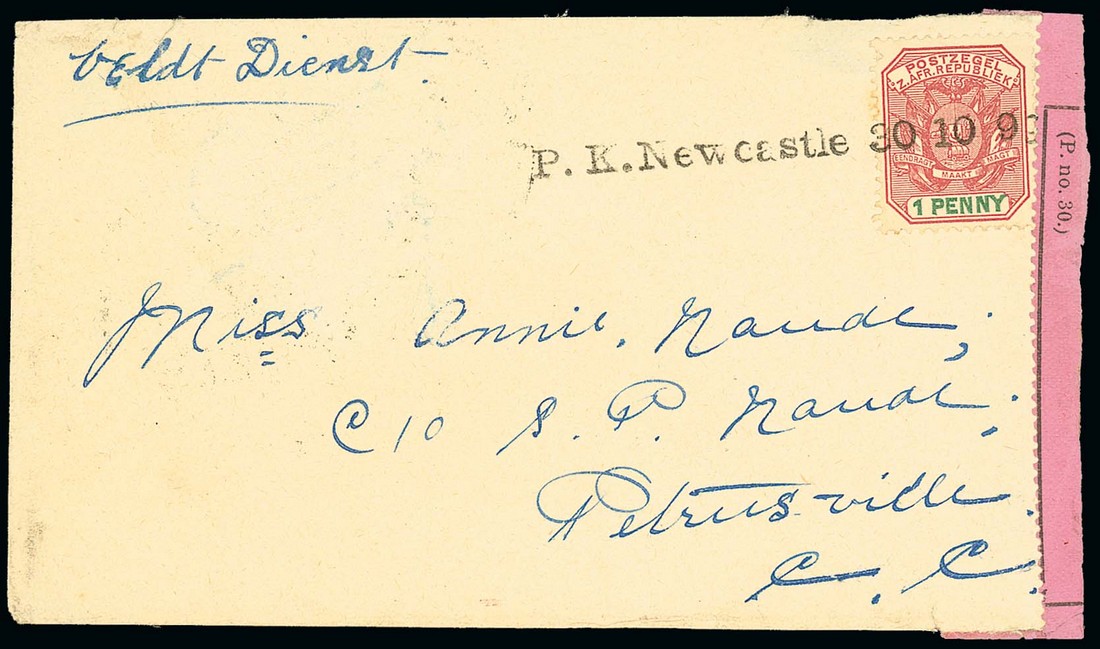 Veldt Dienst.
POSTZEGEL
Z. AFR. REPUBLIEK
EENDRAGT MAAKT MAGT
1 PENNY
P. K. Newcastle 30 10 99
(P. no. 30.)
Miss Annie Naude,
C/o S. P. Naude.
Petrusville.
C. C.